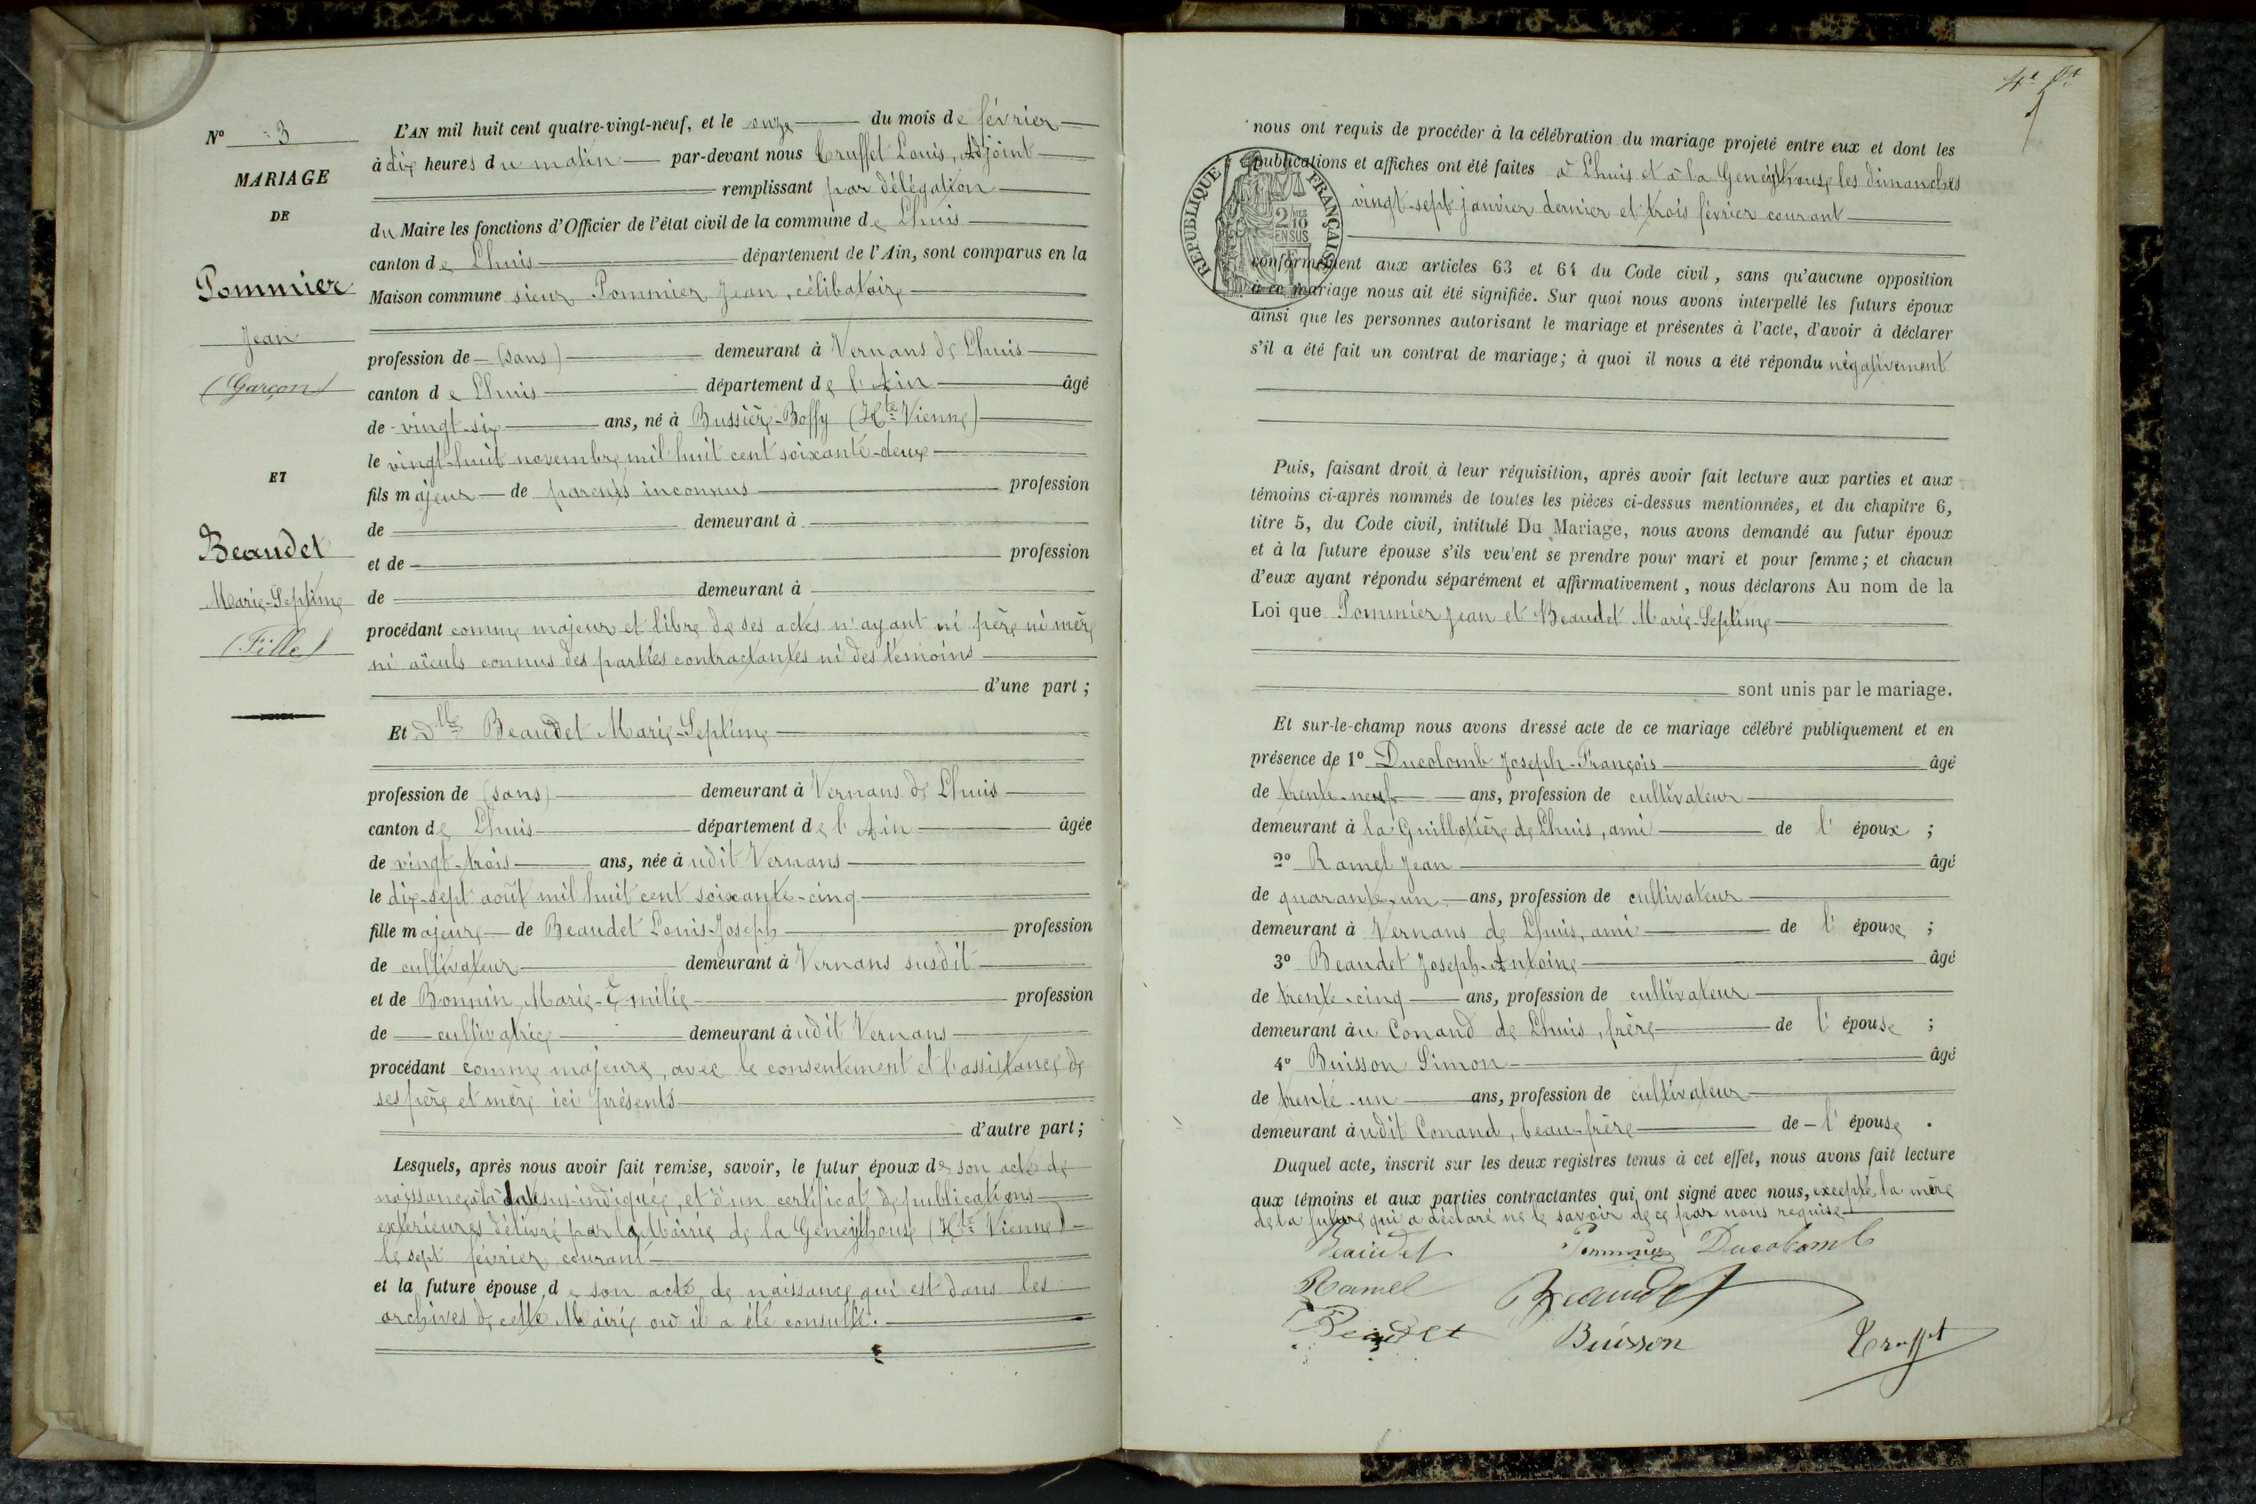 N° 3
MARIAGE
DE
Pommier
Jean
(Garçon)
ET
Beaudet
Marie-Septime
(Fille)
L'AN mil huit cent quatre-vingt-neuf, et le onze du mois de février
à dix heures du matin par-devant nous Truffet Louis, Adjoint
remplissant par délégation
du Maire les fonctions d'Officier de l'état civil de la commune de Lhuis
canton de Lhuis département de l'Ain, sont comparus en la
Maison commune sieur Pommier Jean, célibataire
profession de (sans) demeurant à Vernans de Lhuis
canton de Lhuis département de l'Ain âgé
de vingt-six ans, né à Bussière-Boffy (Hte Vienne)
le vingt-huit novembre mil huit cent soixante-deux
fils majeur de parents inconnus profession
de demeurant à
et de profession
de demeurant à
procédant comme majeur et libre de ses actes n'ayant ni père ni mère
ni aïeuls connus des parties contractantes ni des témoins
d'une part ;
Et Dlle Beaudet Marie-Septime
profession de (sans) demeurant à Vernans de Lhuis
canton de Lhuis département de l'Ain âgée
de vingt-trois ans, née audit Vernans
le dix-sept août mil huit cent soixante-cinq
fille majeure de Beaudet Louis-Joseph profession
de cultivateur demeurant à Vernans susdit
et de Bonnin Marie-Emilie profession
de cultivatrice demeurant audit Vernans
procédant comme majeure, avec le consentement et l'assistance de
ses père et mère ici présents
d'autre part ;
Lesquels, après nous avoir fait remise, savoir, le futur époux de son acte de
naissance à la date sus-indiquée, et d'un certificat de publications
extérieures délivré par la Mairie de la Geneythouse (Hte Vienne)
le sept février courant
et la future épouse, de son acte de naissance qui est dans les
archives de cette Mairie où il a été consulté.
4e
RÉPUBLIQUE FRANÇAISE
2/10 EN SUS
nous ont requis de procéder à la célébration du mariage projeté entre eux et dont les
publications et affiches ont été faites à Lhuis et à la Geneythouse les dimanches
vingt-sept janvier dernier et trois février courant
conformément aux articles 63 et 64 du Code civil, sans qu'aucune opposition
à ce mariage nous ait été signifiée. Sur quoi nous avons interpellé les futurs époux
ainsi que les personnes autorisant le mariage et présentes à l'acte, d'avoir à déclarer
s'il a été fait un contrat de mariage ; à quoi il nous a été répondu négativement
Puis, faisant droit à leur réquisition, après avoir fait lecture aux parties et aux
témoins ci-après nommés de toutes les pièces ci-dessus mentionnées, et du chapitre 6,
titre 5, du Code civil, intitulé Du Mariage, nous avons demandé au futur époux
et à la future épouse s'ils veulent se prendre pour mari et pour femme ; et chacun
d'eux ayant répondu séparément et affirmativement, nous déclarons Au nom de la
Loi que Pommier Jean et Beaudet Marie-Septime
sont unis par le mariage.
Et sur-le-champ nous avons dressé acte de ce mariage célébré publiquement et en
présence de 1° Ducolomb Joseph-François âgé
de trente-neuf ans, profession de cultivateur
demeurant à la Guillotière de Lhuis, ami de l'époux ;
2° Ramel Jean âgé
de quarante-un ans, profession de cultivateur
demeurant à Vernans de Lhuis, ami de l'épouse ;
3° Beaudet Joseph-Antoine âgé
de trente-cinq ans, profession de cultivateur
demeurant au Conand de Lhuis, frère de l'épouse ;
4° Buisson Simon âgé
de trente-un ans, profession de cultivateur
demeurant audit Conand, beau-frère de l'épouse.
Duquel acte, inscrit sur les deux registres tenus à cet effet, nous avons fait lecture
aux témoins et aux parties contractantes qui ont signé avec nous, excepté la mère
de la future qui a déclaré ne le savoir de ce par nous requise
Beaudet Pommier Ducolomb
Ramel Beaudet
Beaudet Buisson Truffet